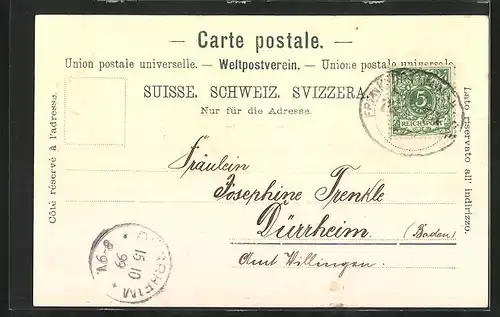 — Carte postale. —
Union postale universelle. — Weltpostverein. — Unione postale universale
SUISSE. SCHWEIZ. SVIZZERA.
Nur für die Adresse.
Côté réservé à l'adresse.
Lato riservato all' indirizzo.
5
REICHSPOST
Fräulein
Josephine Trenkle
Dürrheim. (Baden)
Amt Villingen.
DÜRRHEIM
15 10
99
8-9V.